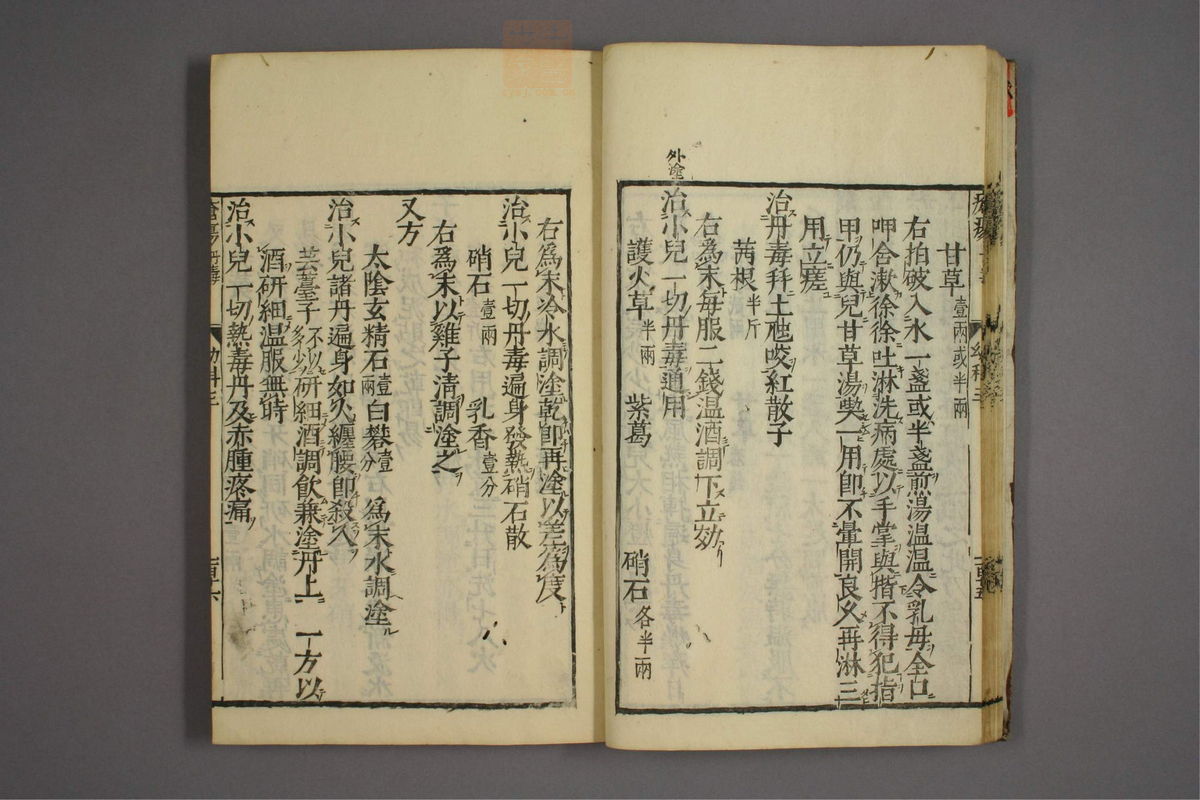 甘草壹兩或半兩
右拍破入水一盞或半盞煎湯溫溫令乳母全口
呷含漱徐徐吐淋洗病處以手掌與揩不得犯指
甲仍與兒甘草湯喫一用卽不暈開良久再淋三
用立瘥
治丹毒并土虺咬紅散子
茜根半斤
右爲末每服二錢溫酒調下立効
外塗
治小兒一切丹毒通用
護火草半兩 紫葛 硝石各半兩
右爲末冷水調塗乾卽再塗以差爲度
治小兒一切丹毒遍身發熱硝石散
硝石壹兩 乳香壹分
右爲末以雞子淸調塗之
又方
太陰玄精石壹兩白礬壹分 爲末水調塗
治小兒諸丹遍身如火纏腰卽殺人
芸薹子不以多少研細酒調飮兼塗丹上 一方以
酒研細溫服無時
治小兒一切熱毒丹及赤腫疼痛